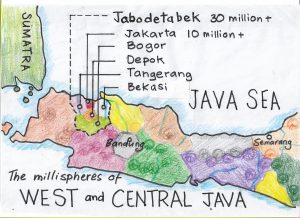 SUMATRA
Jabodetabek 30 million+
Jakarta 10 million+
Bogor
Depok
Tangerang
Bekasi
JAVA SEA
Bandung
Semarang
The millispheres of
WEST and CENTRAL JAVA